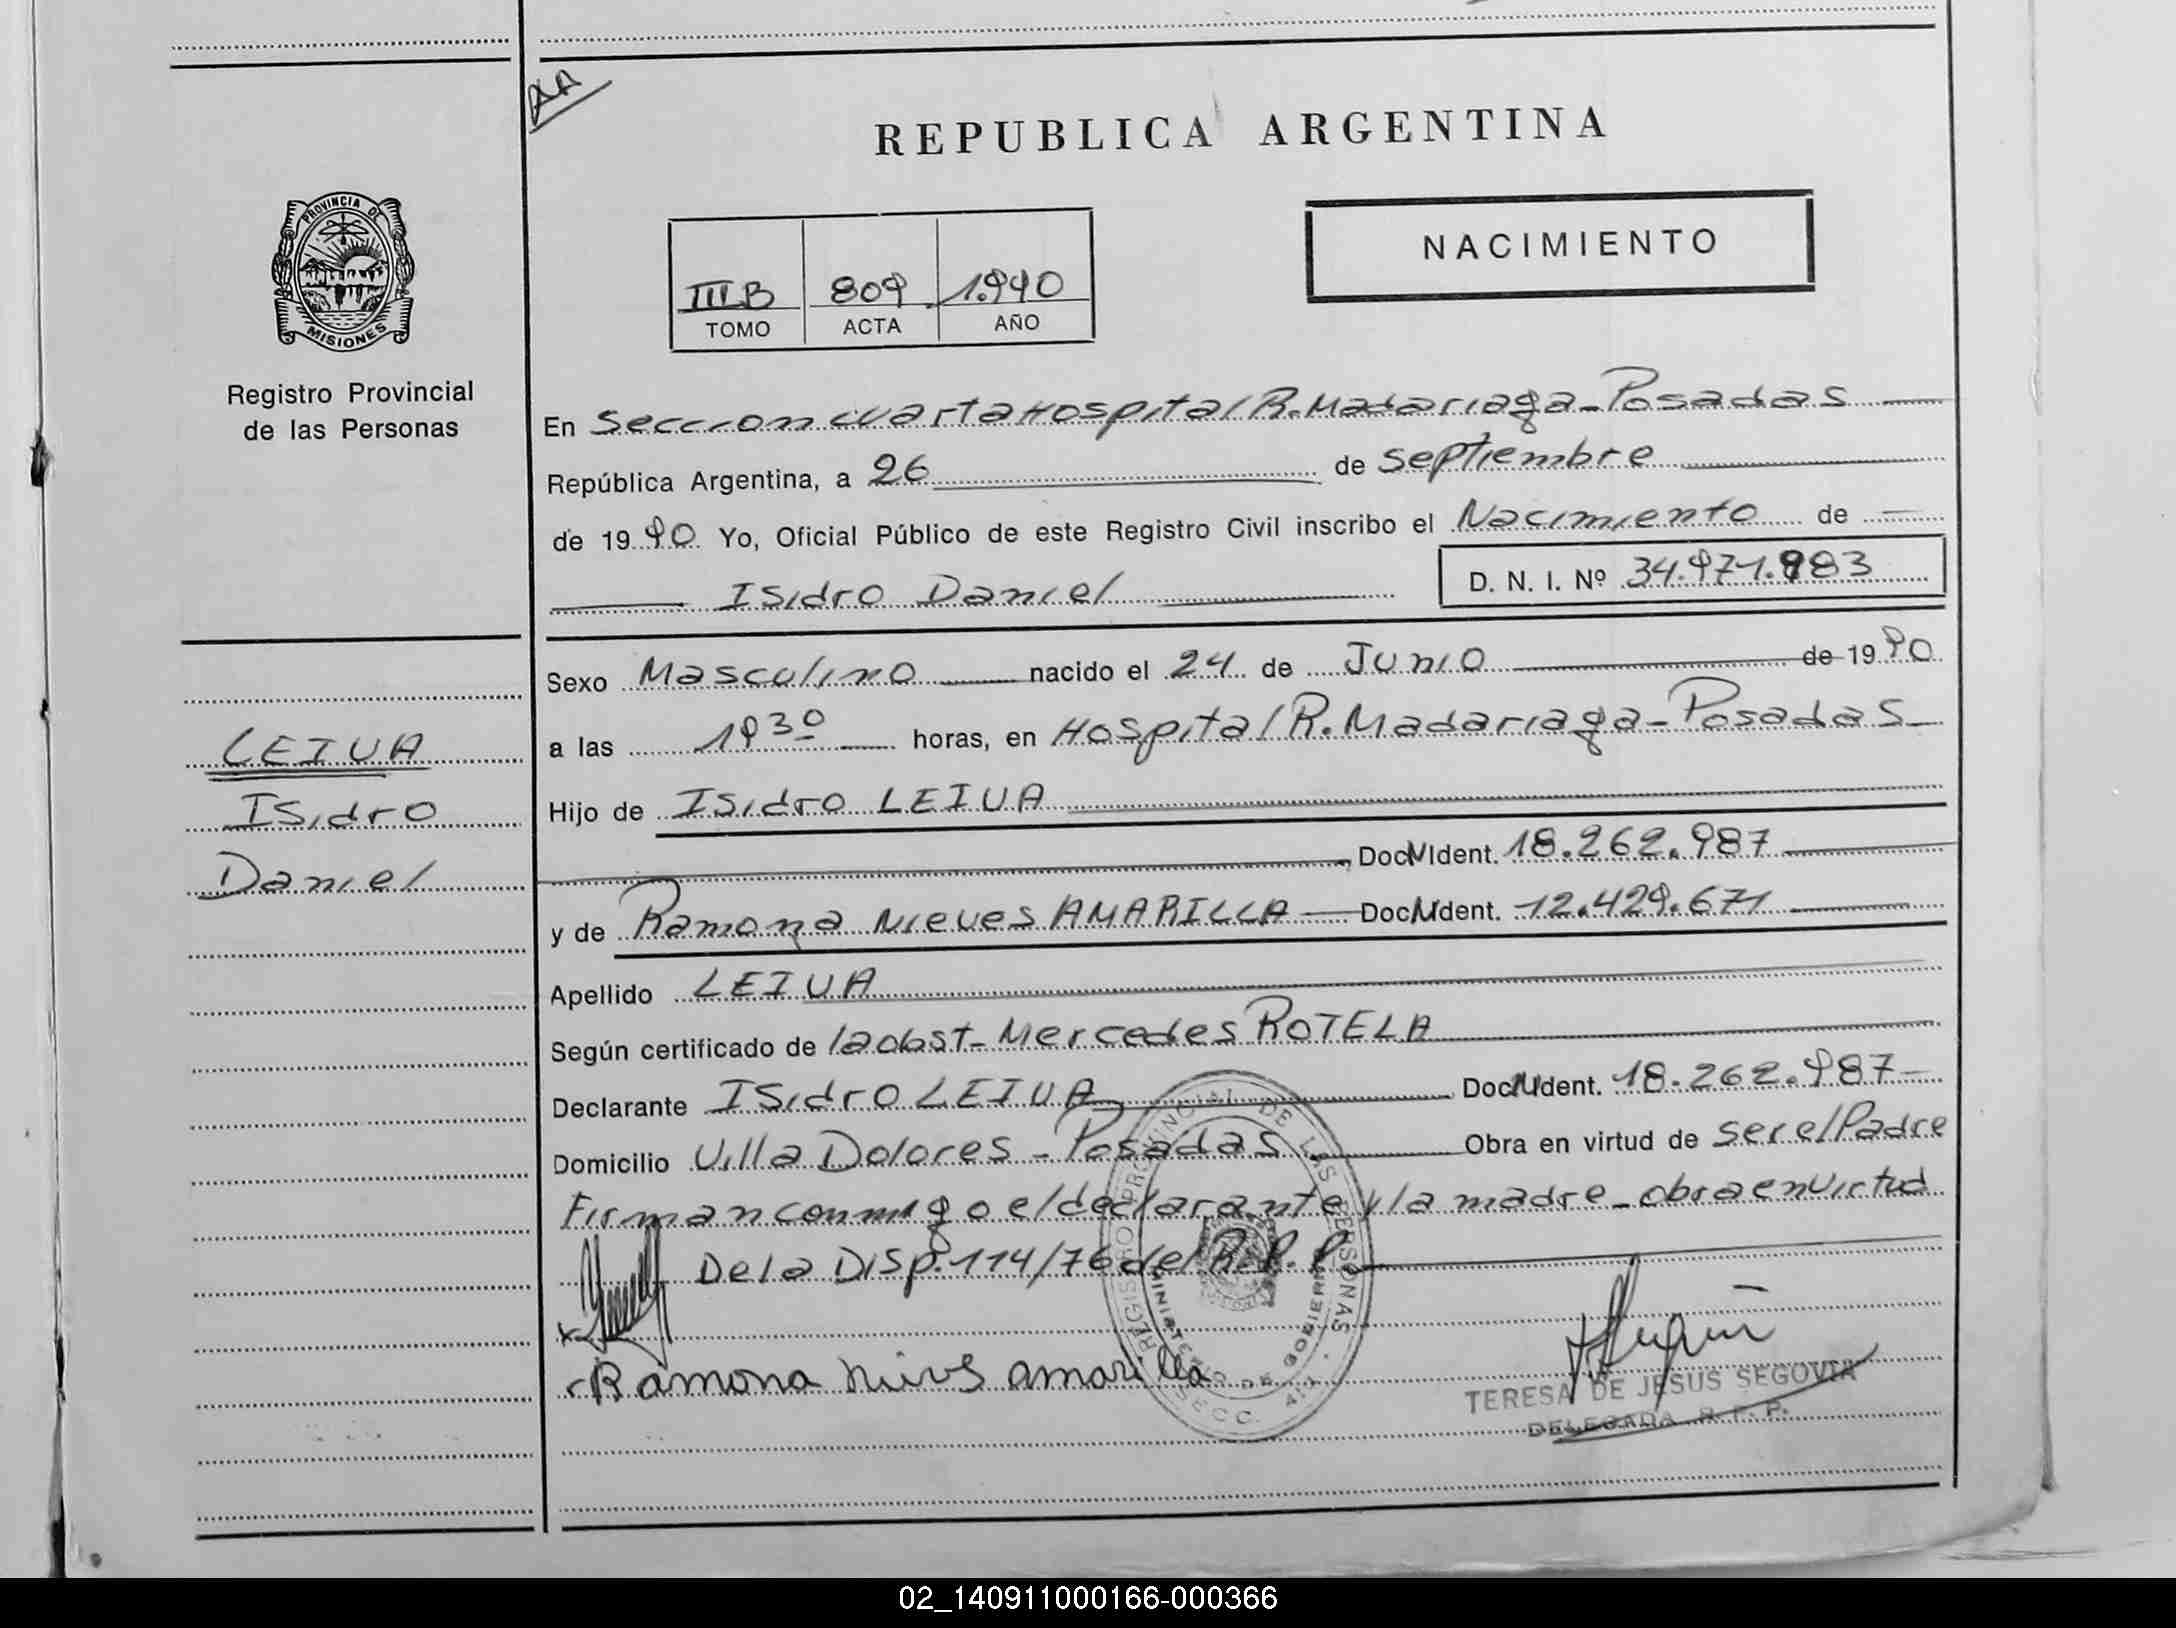 AA
REPUBLICA ARGENTINA
PROVINCIA DE
MISIONES
Registro Provincial
de las Personas
III B 809 1.990
TOMO ACTA AÑO
NACIMIENTO
En Seccion cuarta Hospital R. Madariaga - Posadas
República Argentina, a 26 de septiembre
de 1990 Yo, Oficial Público de este Registro Civil inscribo el Nacimiento de
Isidro Daniel
D. N. I. Nº 34.971.983
Sexo Masculino nacido el 24 de Junio de 1990
a las 1930 horas, en Hospital R. Madariaga - Posadas
Hijo de Isidro LEIVA
Doc. N Ident. 18.262.987
y de Ramona Nieves AMARILLA Doc. N Ident. 12.429.671
Apellido LEIVA
Según certificado de la obst. Mercedes ROTELA
Declarante Isidro LEIVA Doc. N Ident. 18.262.987
Domicilio Villa Dolores - Posadas Obra en virtud de ser el Padre
Firman conmigo el declarante y la madre - obra en virtud
De la Disp. 114/76 del R. P. P.
Ramona Nievs amarilla
LEIVA
Isidro
Daniel
REGISTRO PROVINCIAL DE LAS PERSONAS
MINISTERIO DE GOBIERNO
SECC. 4ta.
TERESA DE JESUS SEGOVIA
DELEGADA R. P. P.
02_140911000166-000366